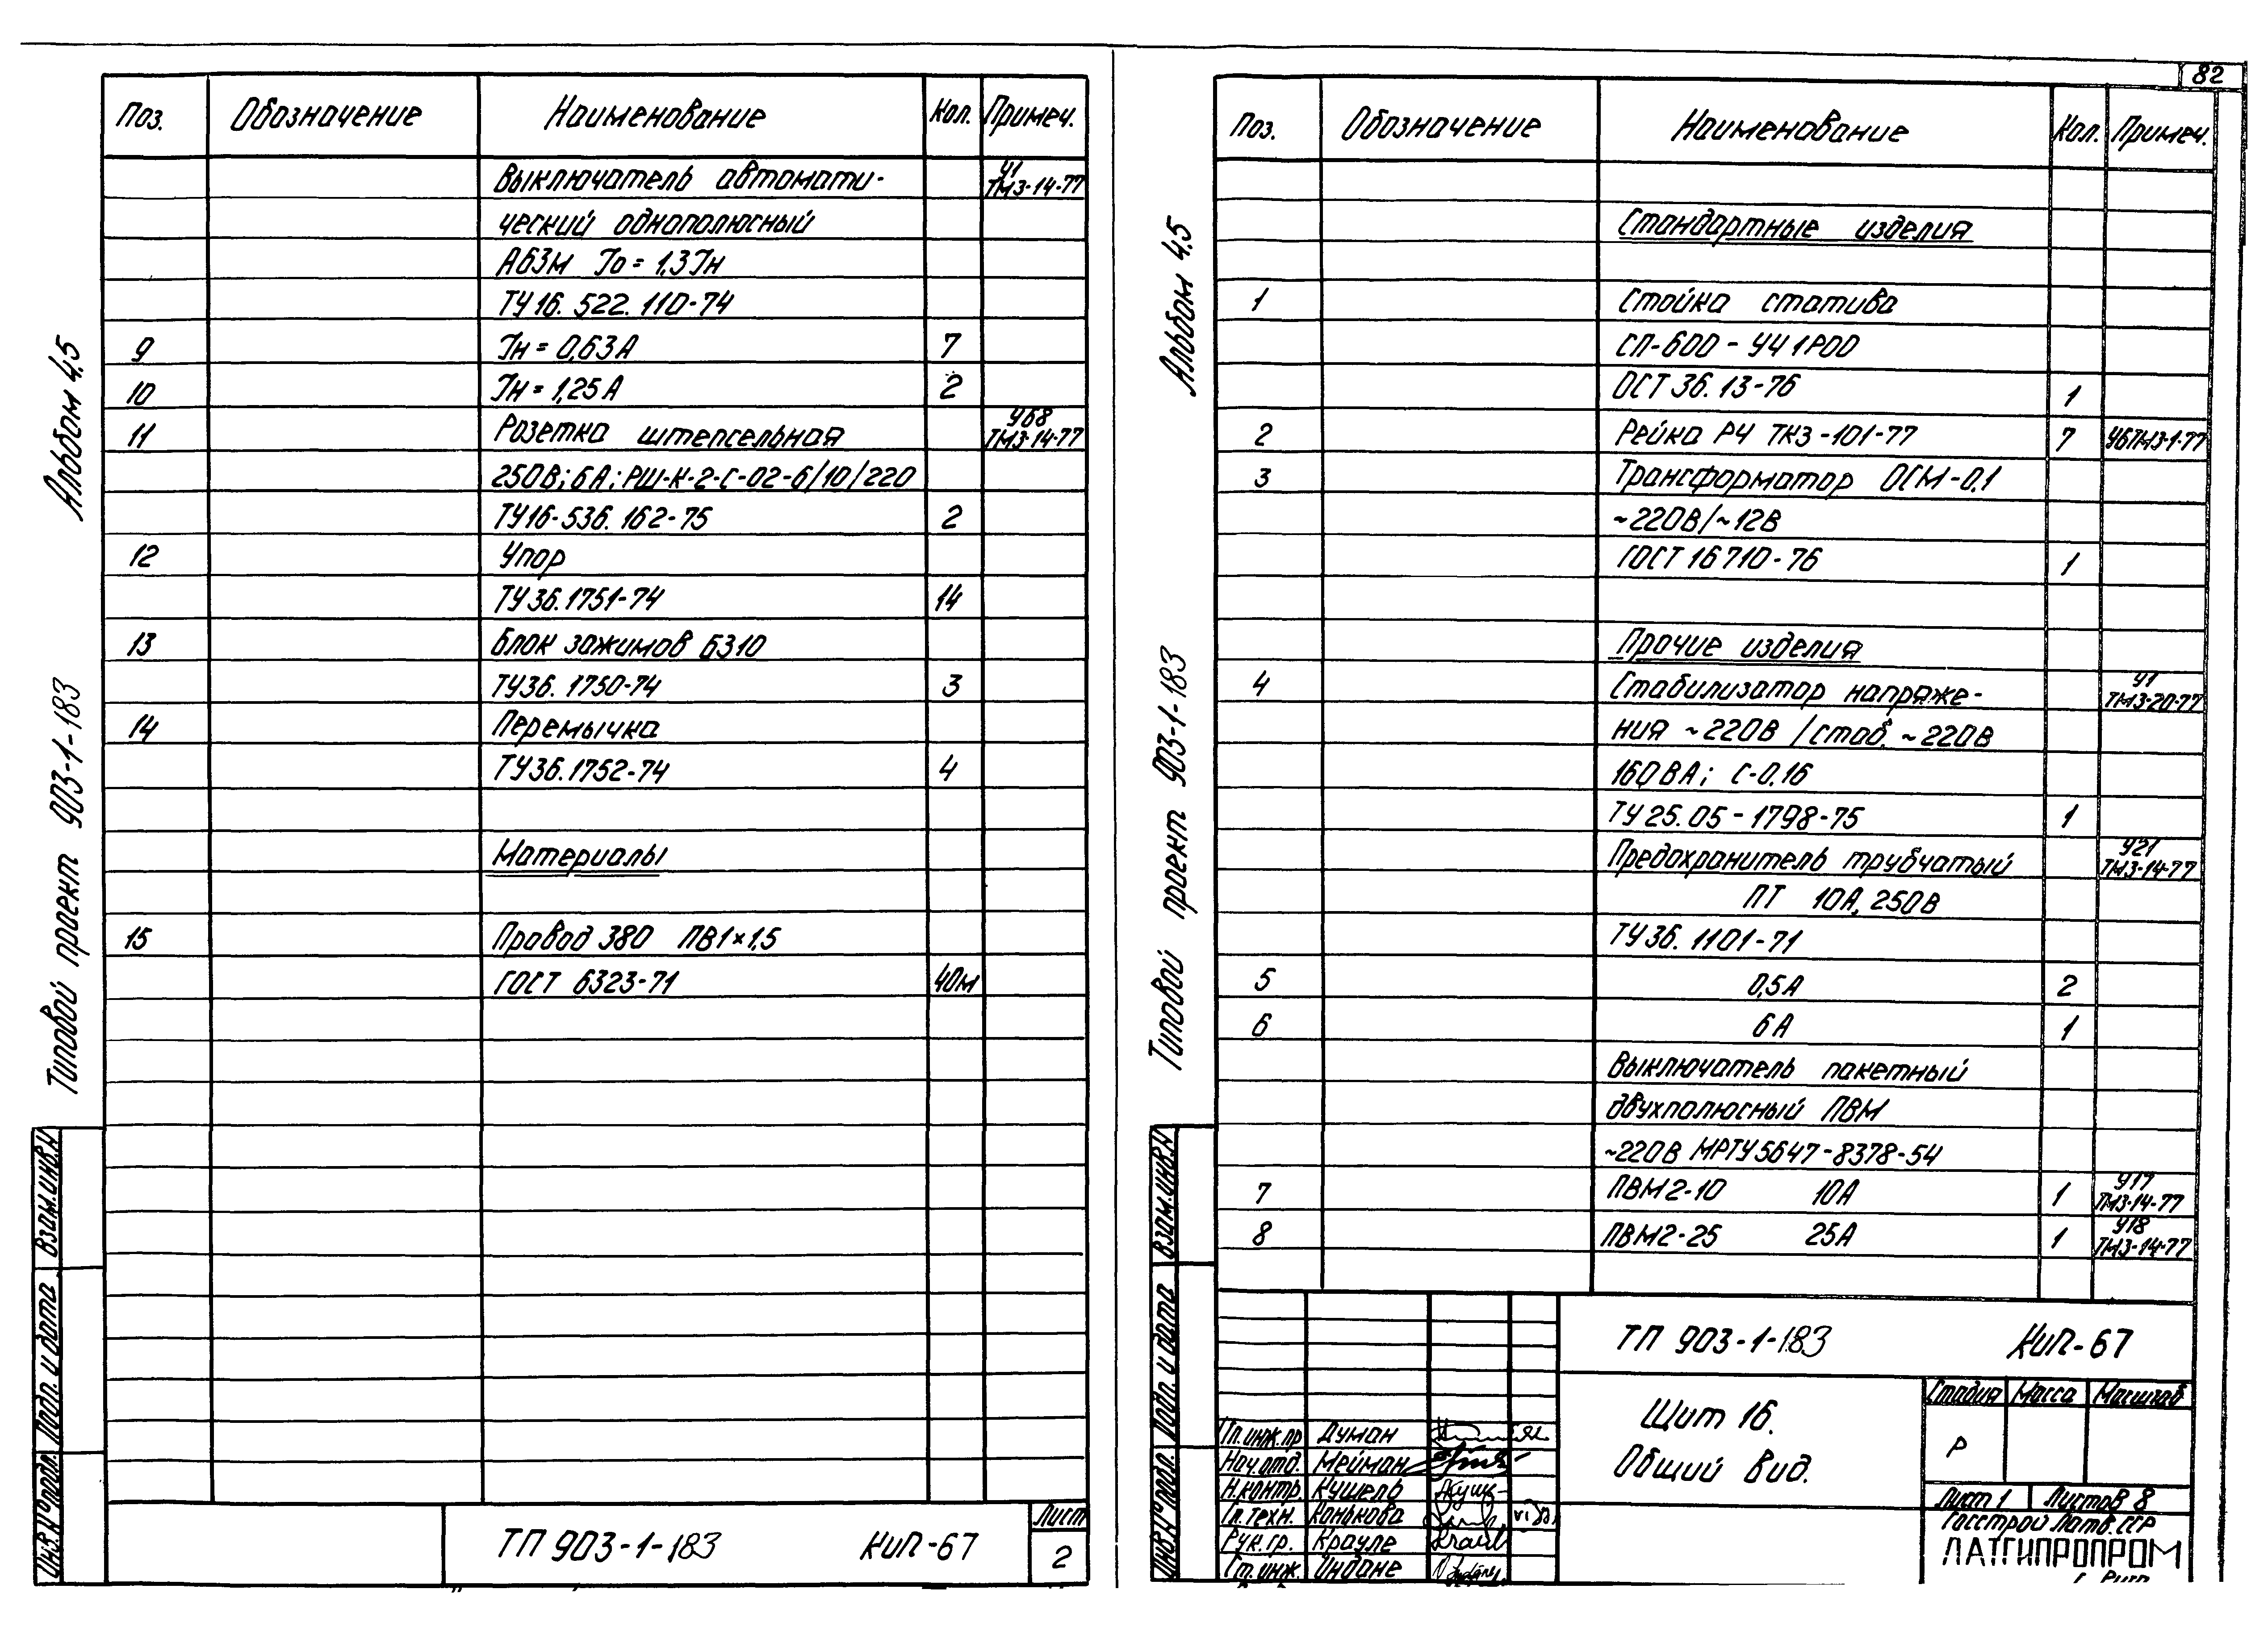 82
Альбом 4.5
Типовой проект 903-1-183
Взам.инв.N
Подп. и дата
Инв.N°подл.
Поз. Обозначение Наименование Кол. Примеч.
Выключатель автомати- У1 ТМ3-14-77
ческий однополюсный
А63М Jо = 1,3Jн
ТУ16. 522. 110-74
9 Jн = 0,63А 7
10 Jн = 1,25А 2
11 Розетка штепсельная У68 ТМ3-14-77
250В; 6А; РШ-К-2-С-02-6/10/220
ТУ16-536. 162-75 2
12 Упор
ТУ36.1751-74 14
13 Блок зажимов БЗ10
ТУ36. 1750-74 3
14 Перемычка
ТУ36.1752-74 4
Материалы
15 Провод 380 ПВ1×1,5
ГОСТ 6323-71 40м
ТП 903-1-183 КиП-67
Лист
2
Альбом 4.5
Типовой проект 903-1-183
Взам.инв.N
Подп. и дата
Инв.N°подл.
Поз. Обозначение Наименование Кол. Примеч.
Стандартные изделия
1 Стойка статива
СП-600-У4 1Р00
ОСТ 36. 13-76 1
2 Рейка Р4 ТК3-101-77 7 У6ТМ3-1-77
3 Трансформатор ОСМ-0,1
~220В/~12В
ГОСТ 16710-76 1
Прочие изделия
4 Стабилизатор напряже- У1 ТМ3-20-77
ния ~220В /стаб. ~220В
160ВА; С-0.16
ТУ 25. 05-1798-75 1
Предохранитель трубчатый У21 ТМ3-14-77
ПТ 10А, 250В
ТУ36. 1101-71
5 0,5А 2
6 6А 1
Выключатель пакетный
двухполюсный ПВМ
~220В МРТУ5647-8378-54
7 ПВМ2-10 10А 1 У17 ТМ3-14-77
8 ПВМ2-25 25А 1 У18 ТМ3-14-77
ТП 903-1-183 КиП-67
Щит 16.
Общий вид.
Стадия Масса Масштаб
Р
Лист 1 Листов 8
Госстрой Латв.ССР
ЛАТГИПРОПРОМ
г. Рига
Гл.инж.пр Думан
Нач.отд. Мейман
Н.контр. Кушель
Гл.техн. Конькова
Рук.гр. Крауле
Ст.инж. Индане